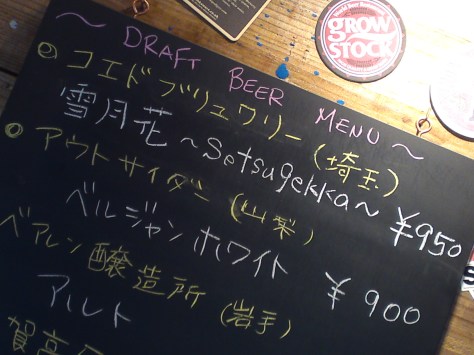 ～ DRAFT BEER MENU ～
コエドブリュワリー (埼玉)
雪月花 ～Setsugekka～ ¥950
アウトサイダー (山梨)
ベルジャンホワイト ¥900
ベアレン醸造所 (岩手)
アルト
賀高
grow
STOCK